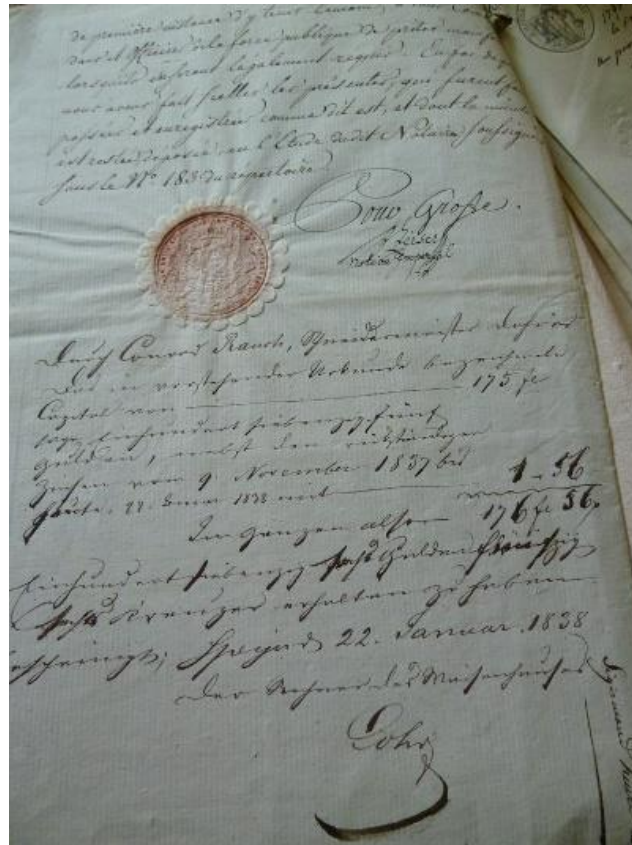 de première instance d'y tenir la main, à tous Com
dans et officiers de la force publique de prêter main
lorsqu'ils en seront légalement requis. En foi de
nous avons fait sceller les présentes, qui furent
passées et enregistrées comme dit est, et dont la minute
est restée déposée en l'Etude dudit Notaire soussigné
sous le No. 183 du repertoire
Pour Grosse.
notaire
Durch Conrad Rauch, Schneidermeister dahier
das in vorstehender Urkunde bezeichnete
Capital von 175 fl
sage Einhundert siebenzig fünf
Gulden, nebst den rückständigen
Zinsen vom 9. November 1837 bis
heute, 22. Januar 1838 mit 1-56
Im ganzen also 176 fl 56.
Einhundert siebenzig sechs Gulden fünfzig
sechs Kreuzer erhalten zu haben
bescheinigt; Speyer d 22. Januar. 1838
Der Rechner des Waisenhauses
Lohr